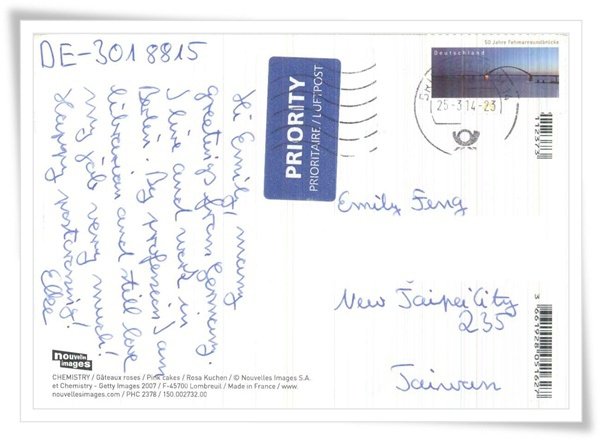 DE-3018815
Hi Emily, many
greetings from Germany.
I live and work in
Berlin. By profession I am
librarian and still love
my job very much!
Happy postcrossing!
Elke
PRIORITY
PRIORITAIRE / LUFTPOST
50 Jahre Fehmarnsundbrücke
Deutschland
25-3.14-23
112373
Emily Feng
New Taipei City
235
Taiwan
3 661928 051627
nouvelles
images
CHEMISTRY / Gâteaux roses / Pink cakes / Rosa Kuchen / © Nouvelles Images S.A.
et Chemistry - Getty Images 2007 / F-45700 Lombreuil / Made in France / www.
nouvellesimages.com / PHC 2378 / 150.002732.00